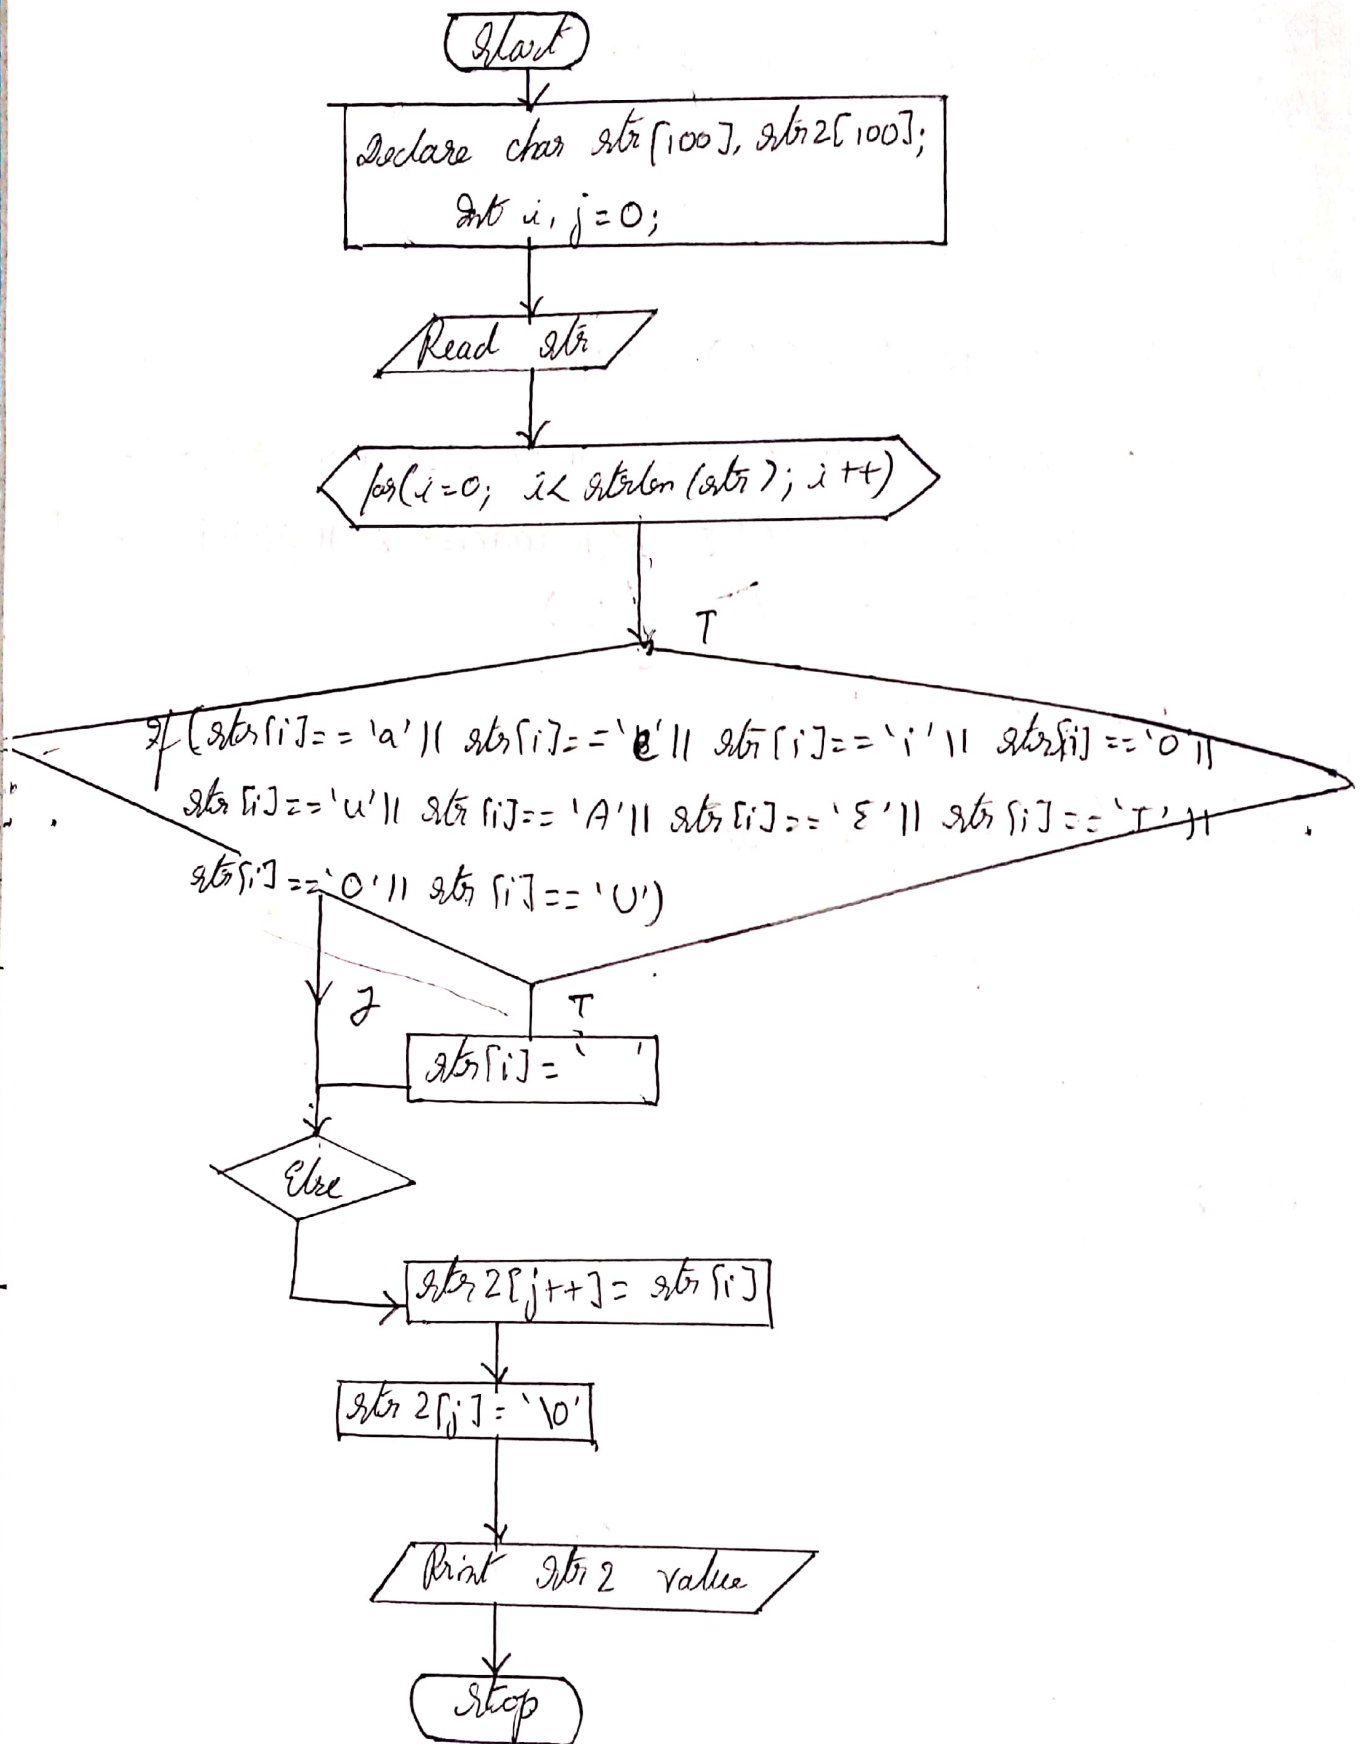 Start
Declare char str[100], str2[100];
Int i, j=0;
Read str
for(i=0; i< strlen(str); i++)
T
If (str[i]=='a'|| str[i]=='e'|| str[i]=='i'|| str[i]=='o'||
str[i]=='u'|| str[i]=='A'|| str[i]=='E'|| str[i]=='I'||
str[i]=='O'|| str[i]=='U')
T
str[i]=' '
Else
str2[j++]= str[i]
str2[j]='\0'
Print str2 value
stop